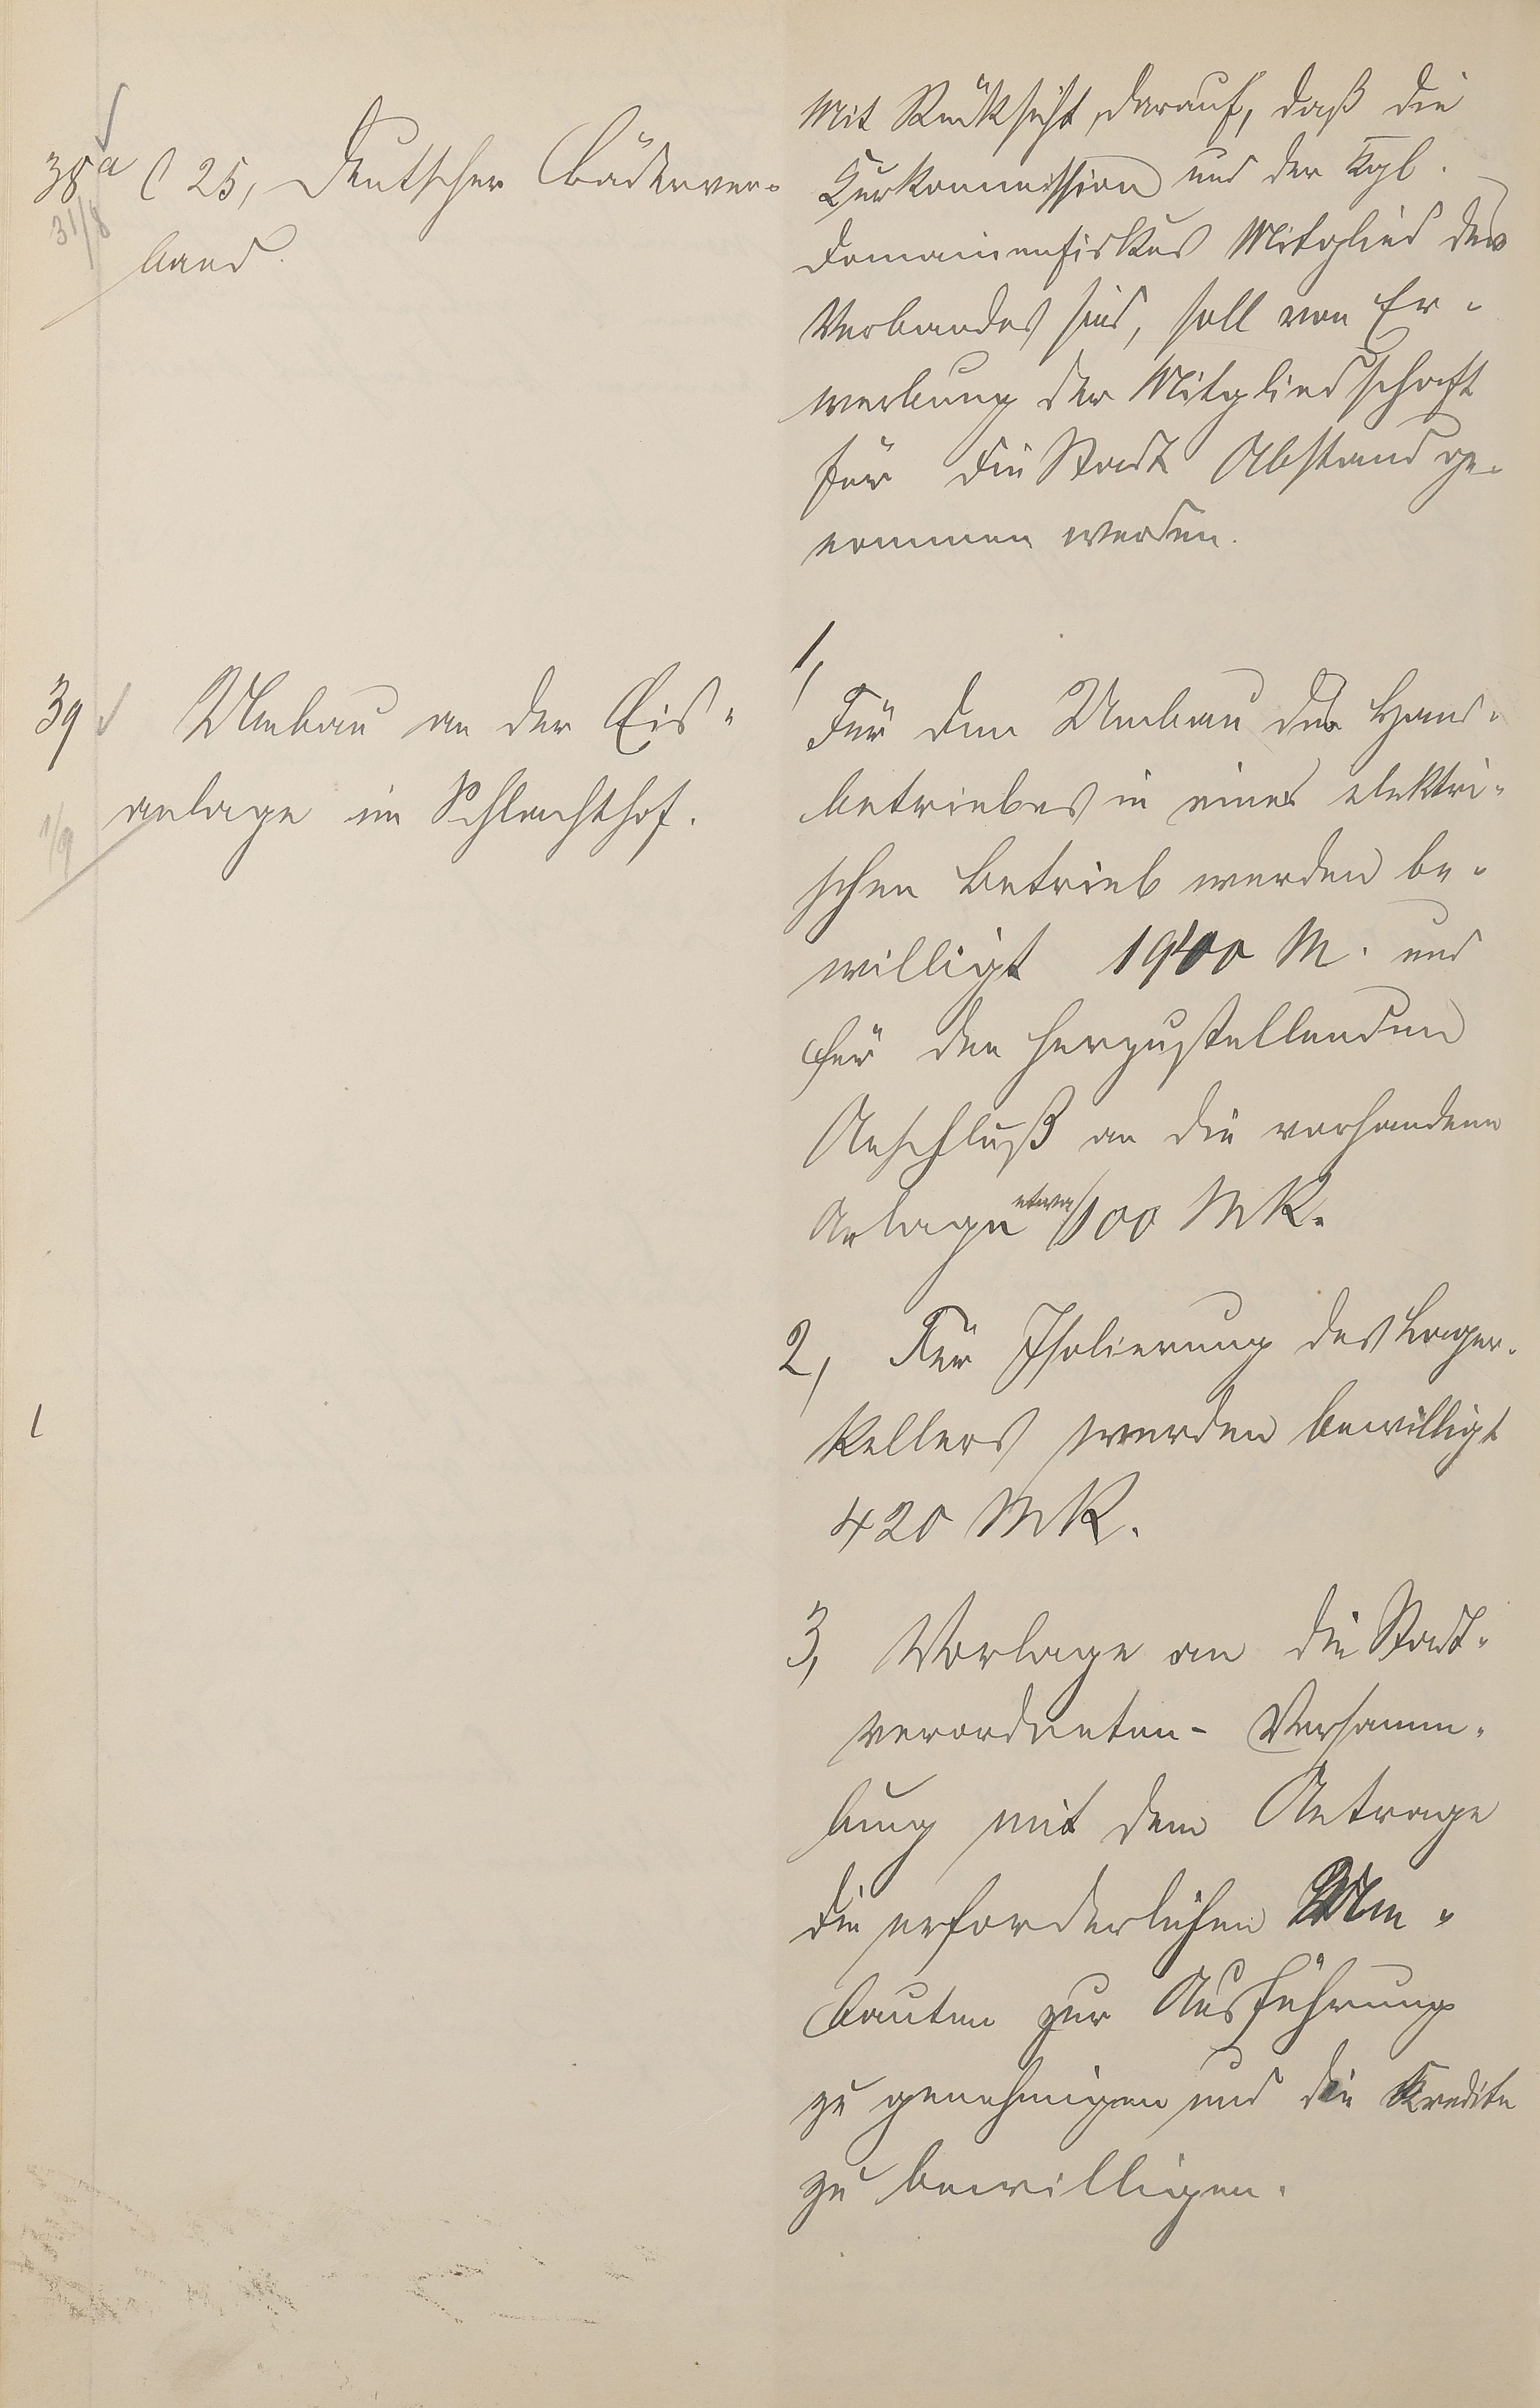 38a C 25, Deutscher Bäderver-
31/8
band.
Mit Rücksicht darauf, daß die
Kurkommission und der Kgl.
Domainenfiskus Mitglied des
Verbandes sind, soll von Er-
werbung der Mitgliedschaft
für die Stadt Abstand ge-
nommen werden.
39 Umbau an der Eis-
anlage im Schlachthof.
1/9
1,
Für den Umbau des Hand-
betriebes in einen elektri-
schen Betrieb werden be-
willigt 1900 M. und
für den herzustellenden
Anschluß an die vorhandene
Anlage etwa 100 MK.
2, Für Isolierung des Lager-
kellers werden bewilligt
420 MK.
3, Vorlage an die Stadt-
verordneten- Versamm-
lung mit dem Antrage
die erforderlichen Um-
bauten zur Ausführung
zu genehmigen und die Kredite
zu bewilligen.